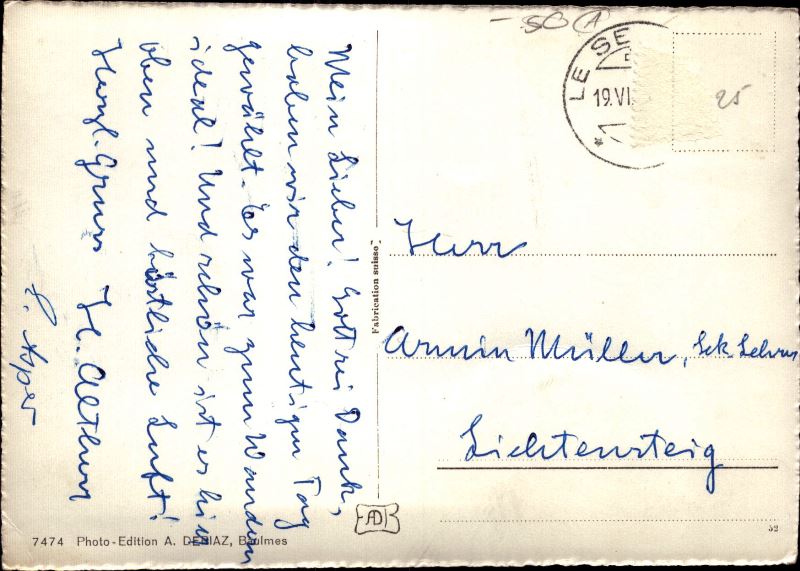 Mein Lieber! Gott sei Dank,
haben wir den heutigen Tag
gewählt. Es war zum Wandern
ideal! Und schön ist es hier
oben und köstliche Luft!
Herzl. Gruss H.
Fabrication suisse
- 50 A
LE SE
19.VI
25
Herr
Armin Müller, Sek. Lehrer
Lichtensteig
AD
7474 Photo-Edition A. DERIAZ, Baulmes
52